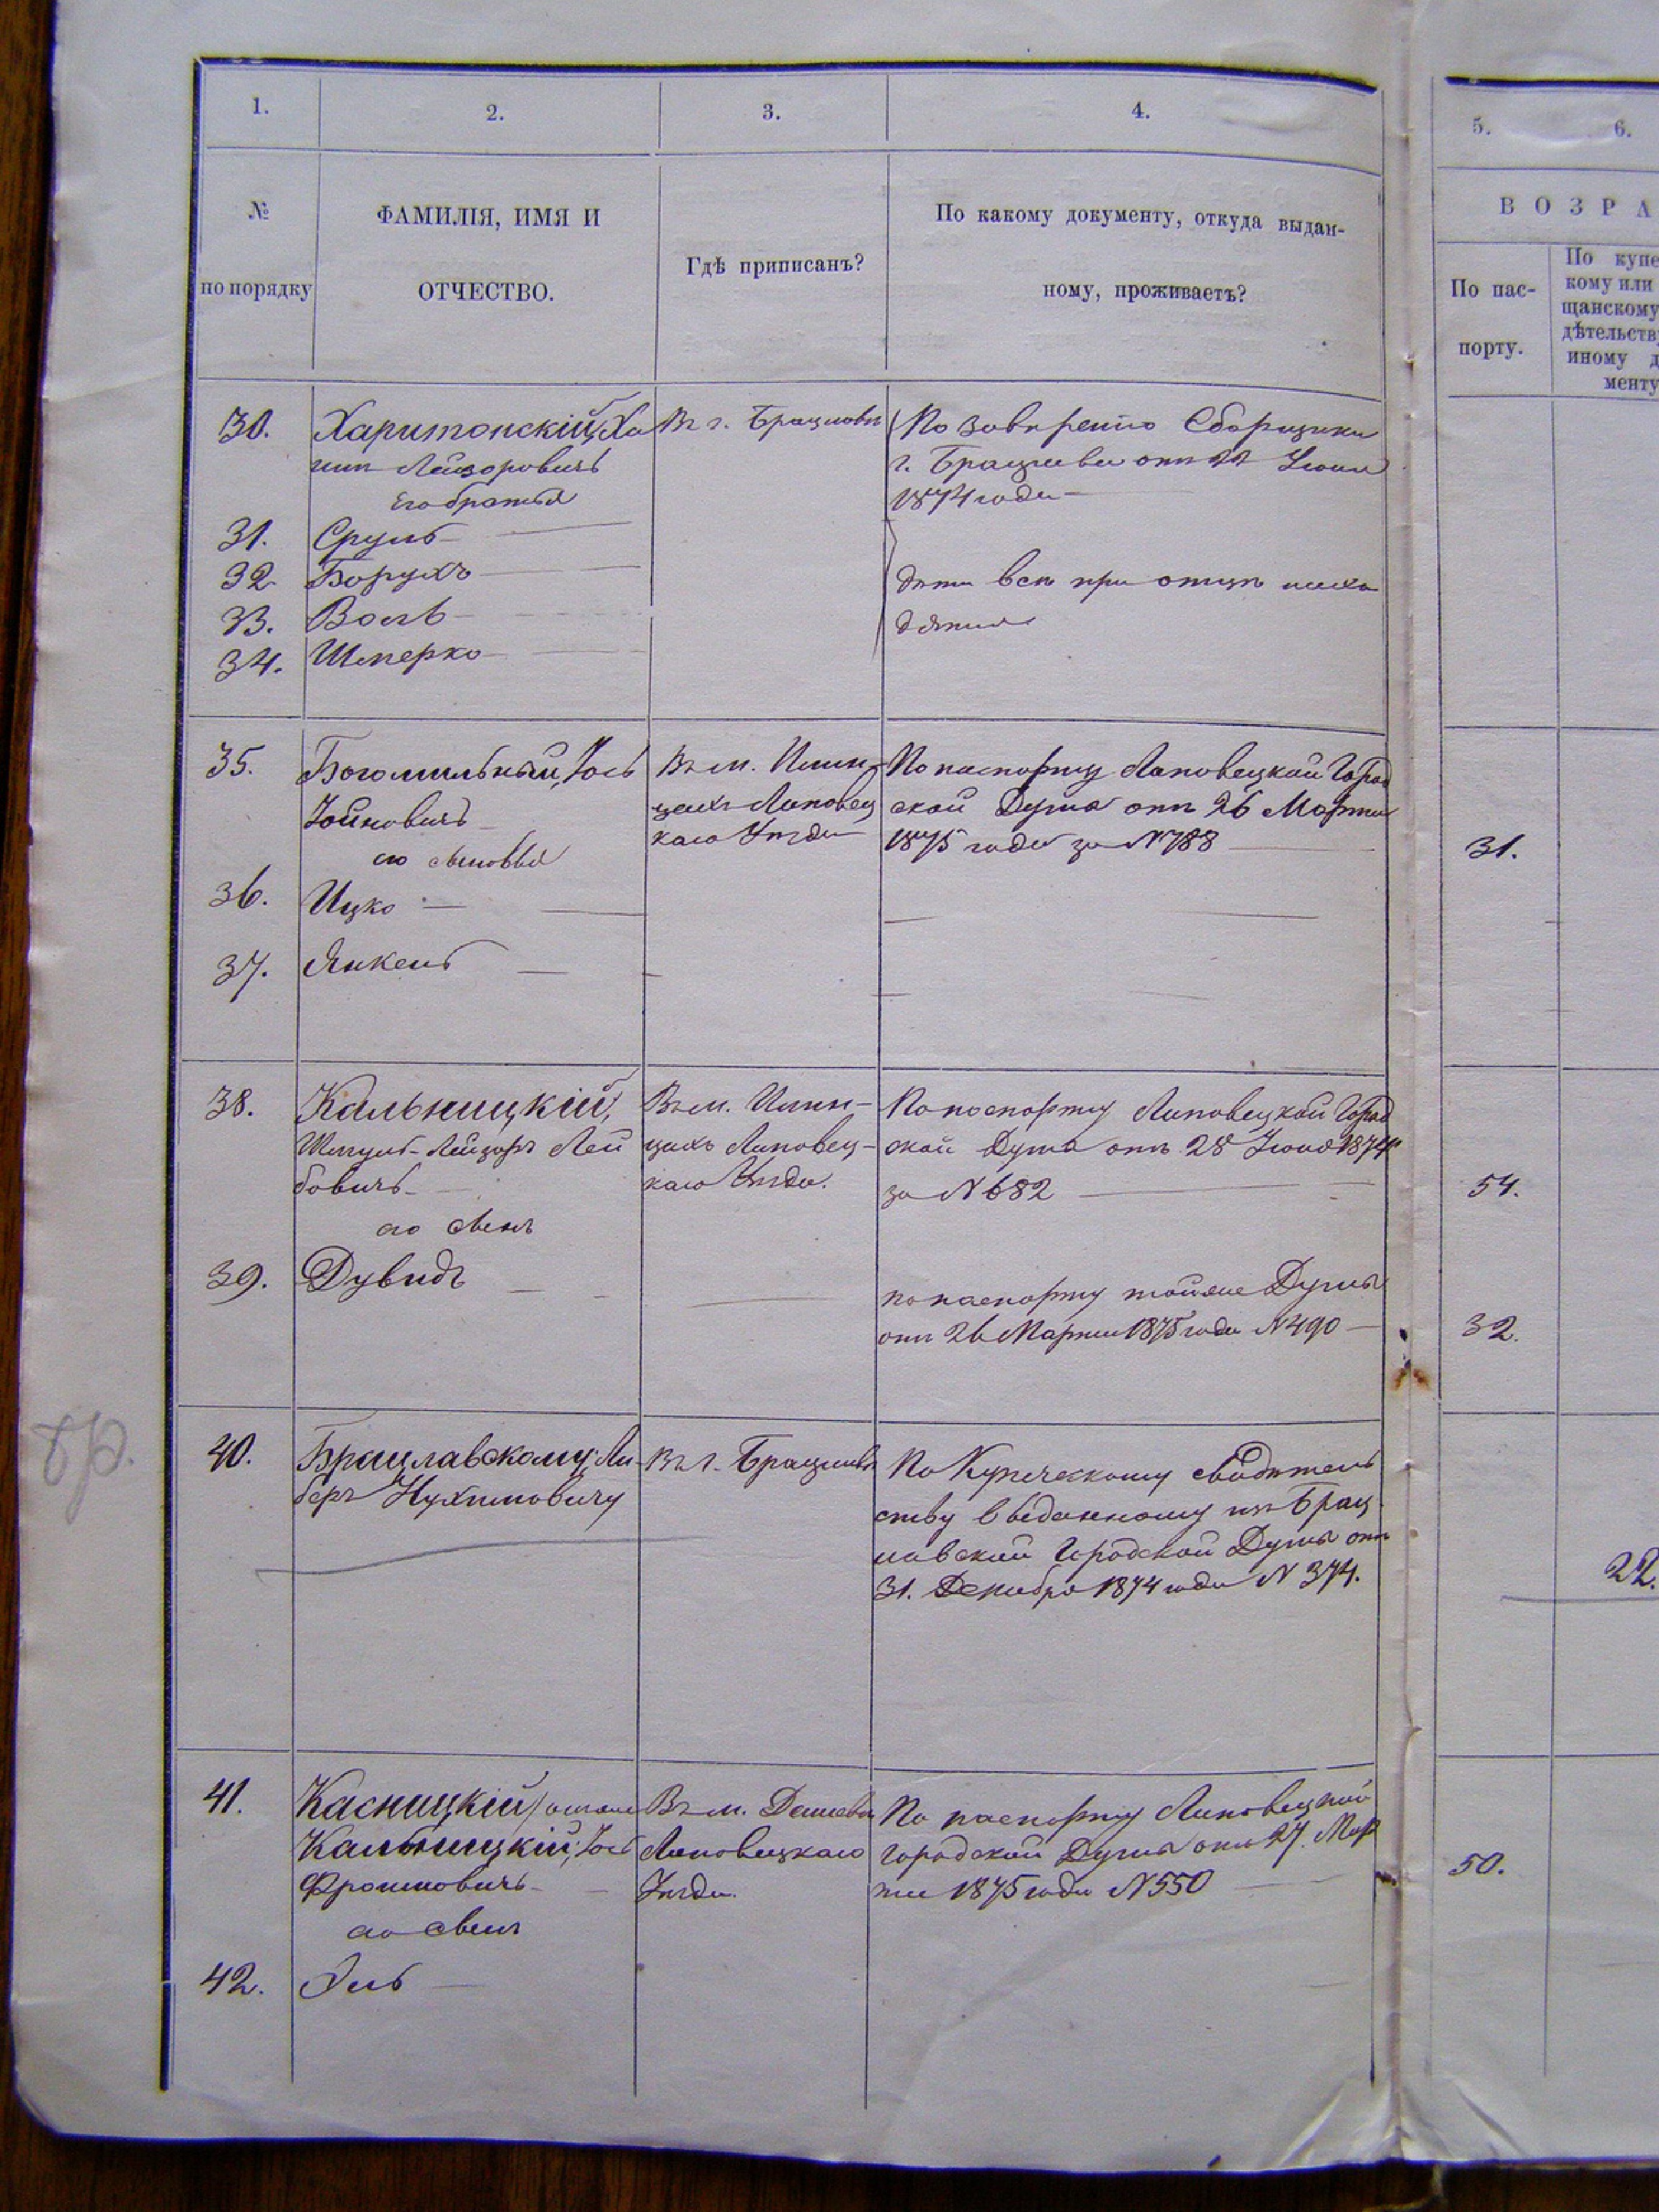 1.
2.
3.
4.
5.
6.
№
по порядку
ФАМИЛІЯ, ИМЯ И
ОТЧЕСТВО.
Гдѣ приписанъ?
По какому документу, откуда выдан-
ному, проживаетъ?
ВОЗРА
По пас-
порту.
По купе
кому или
щанскому
дѣтельств
иному д
менту
30. Харитонскій Ха
Лейзоровичъ
Его братья
31. Сруль
32. Борухъ
33. Волъ
34. Шмерко
Въ г. Брацлавѣ
По завѣренію Сборщика
г. Брацлава отъ 22 Іюня
1874 года
дѣти всѣ при отцѣ нахо
дятся
35. Богомильный, Іось
Іойновичъ
его сыновья
36. Ицко
37. Янкель
Въ м. Илин-
цахъ Липовец
каго Уѣзда
По паспорту Липовецкой Город
ской Думы отъ 26 Марта
1875 года за №788
31.
38. Кальницкій,
Шмуль-Лейзоръ Лей
бовичъ
его сынъ
39. Дувидъ
Въ м. Илин-
цахъ Липовец-
каго Уѣзда.
По паспорту Липовецкой Город
ской Думы отъ 28 Іюня 1874
за №682
по паспорту тойже Думы
отъ 26 Марта 1875 года №490
54.
32.
бр.
40. Брацлавскому Ли-
беръ Нухимовичу
Въ г. Брацлавѣ
По Купеческому свидѣтель
ству выданному изъ Брац-
лавской Городской Думы отъ
31. Декабря 1874 года № 374.
22.
41. Касницкій /онже
Кальницкій, Іось
Фроимовичъ
его сынъ
42. Эль
Въ м. Дашевѣ
Липовецкаго
Уѣзда.
По паспорту Липовецкой
городской Думы отъ 27. Мар
та 1875 года №550
50.